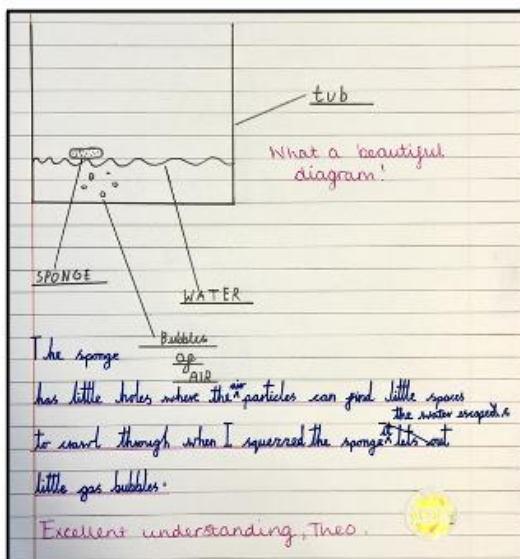 tub
What a beautiful
diagram!
SPONGE
WATER
Bubbles
of
AIR
The sponge
has little holes where the air particles can find little spaces
the water escapes
to crawl through when I squezzed the sponge it lets out
little gas bubbles.
Excellent understanding, Theo.